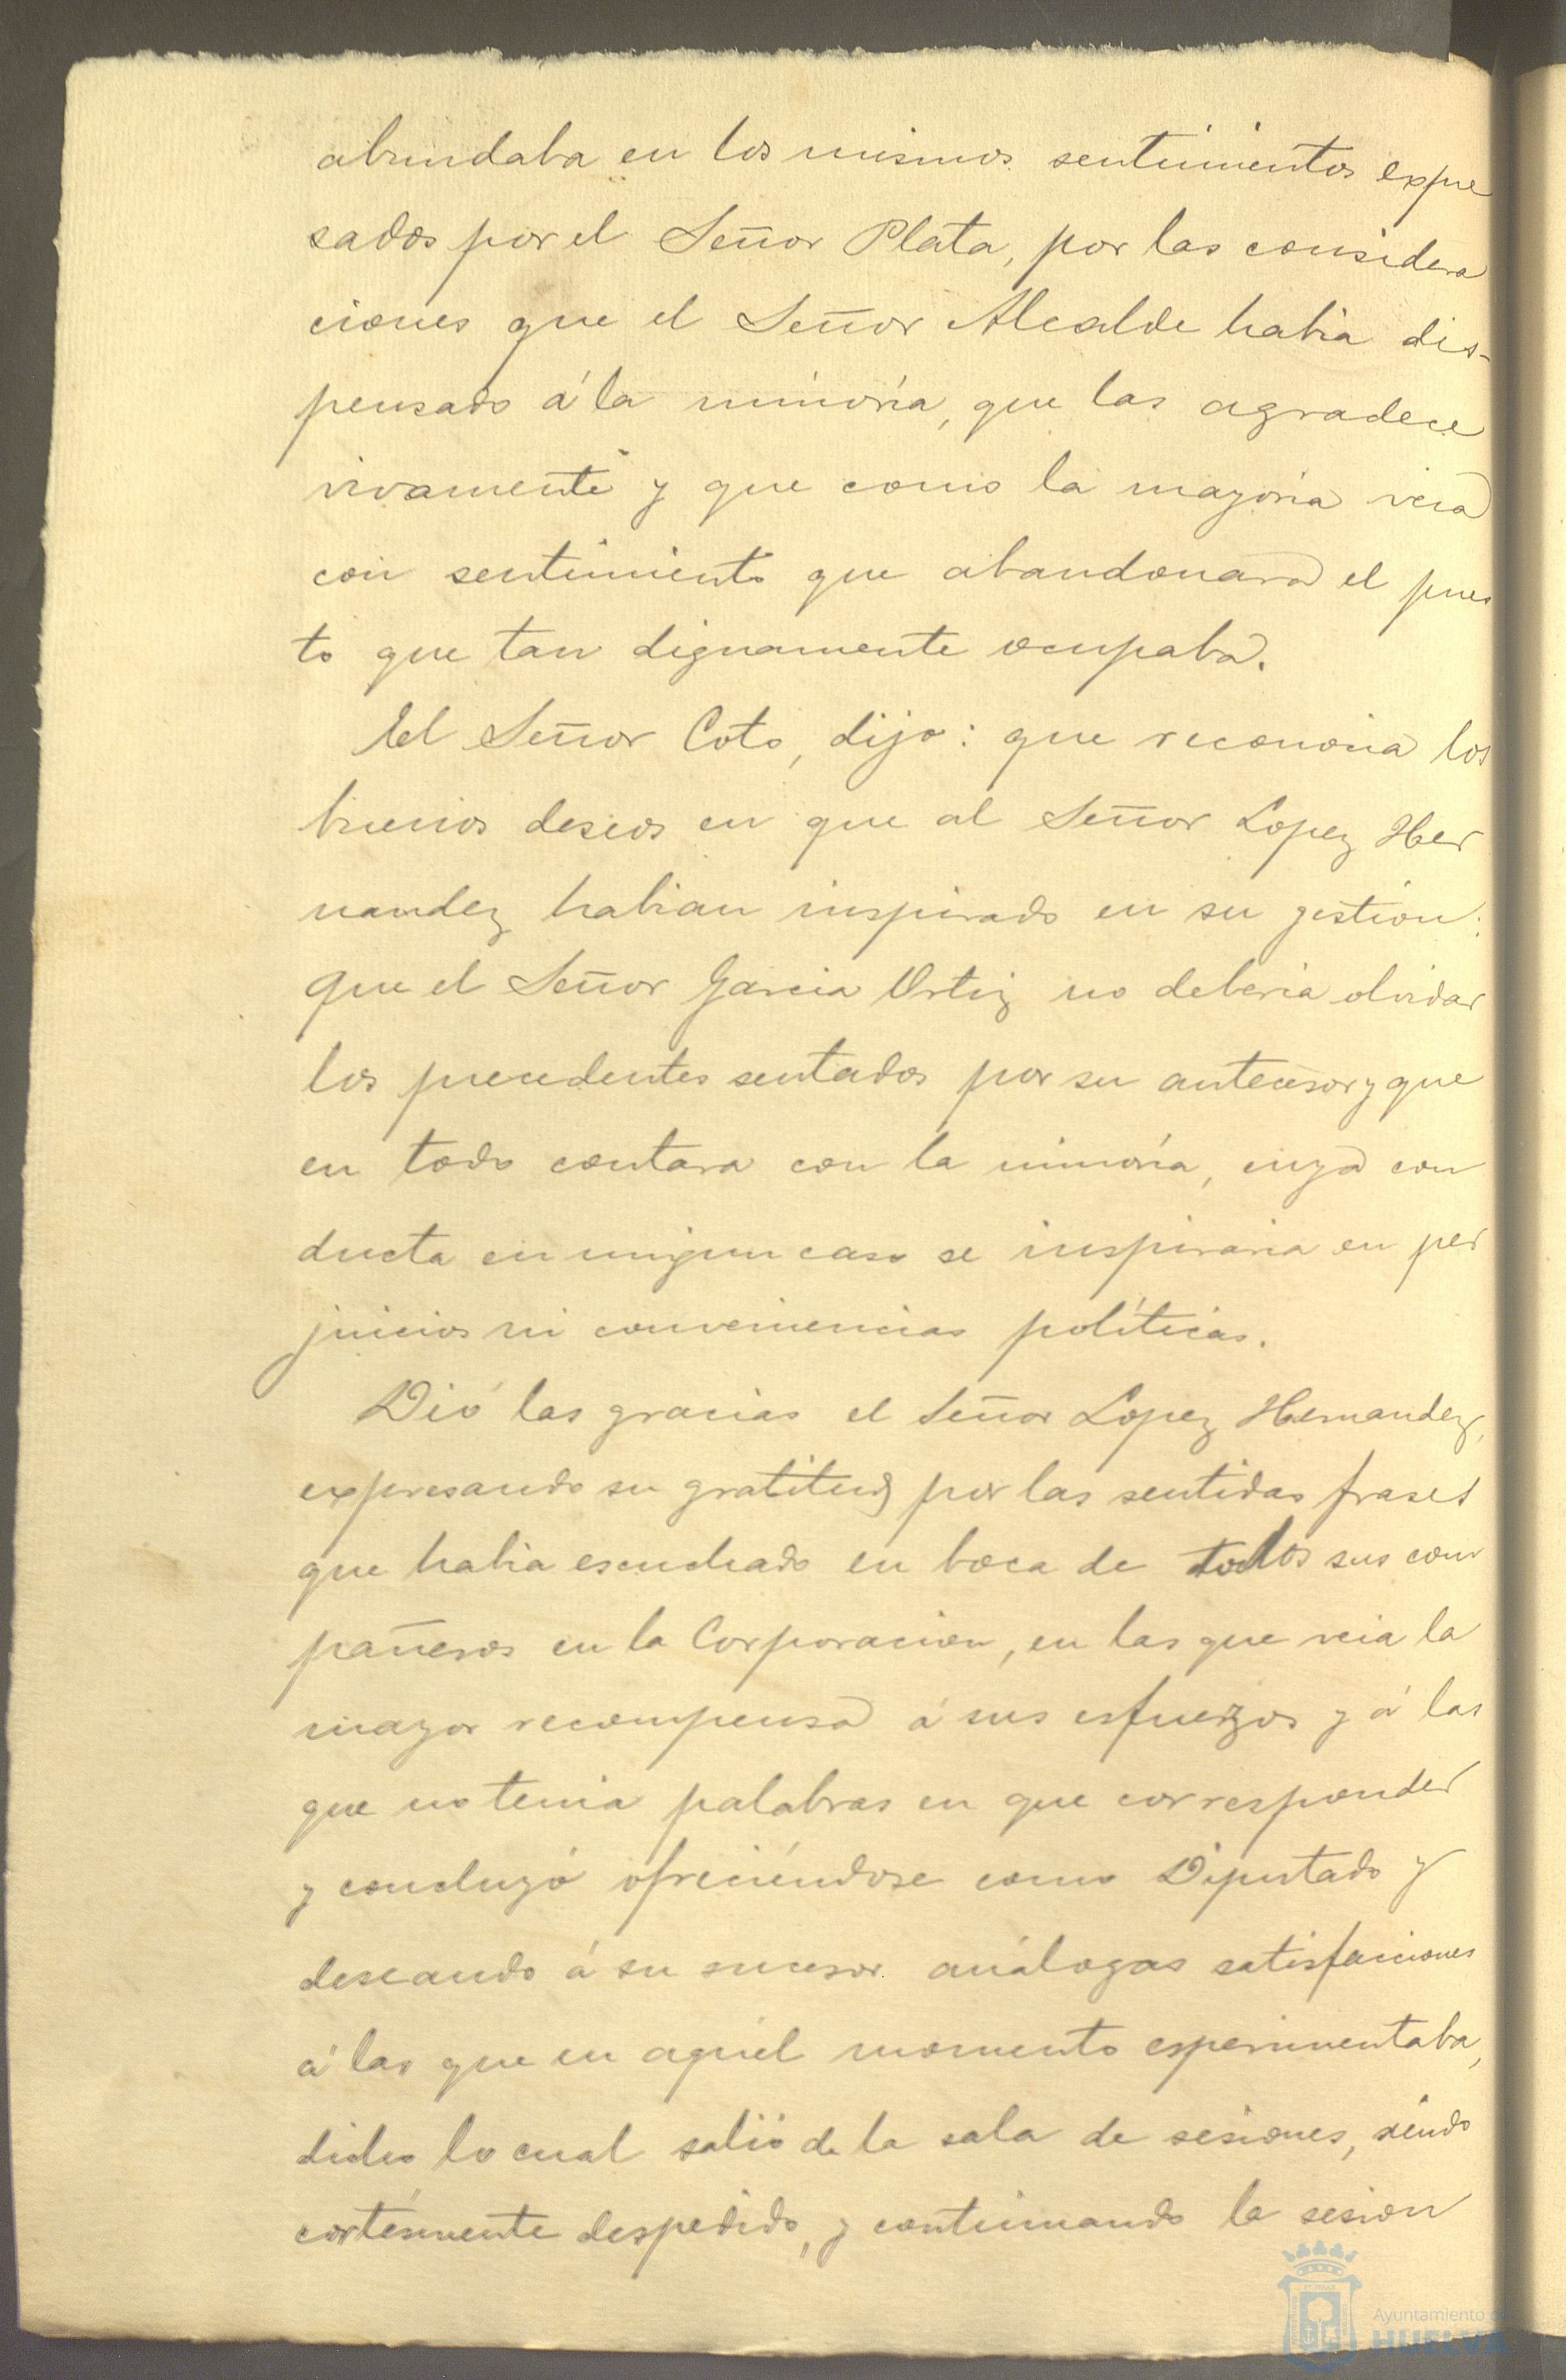 abundaba en los mismos sentimientos expre
sados por el Señor Plata, por las considera
ciones que el Señor Alcalde habia dis-
pensado á la minoría, que las agradece
vivamente y que como la mayoria veia
con sentimiento que abandonara el pues
to que tan dignamente ocupaba.
El Señor Coto, dijo: que reconocia los
buenos deseos en que al Señor Lopez Her
nandez habian inspirado en su gestion:
que el Señor Garcia Ortiz no deberia olvidar
los precedentes sentados por su antecesor y que
en todo contara con la minoría, cuya con
ducta en ningun caso se inspiraria en per
juicios ni conveniencias políticas.
Dió las gracias el Señor Lopez Hernandez,
expresando su gratitud por las sentidas frases
que habia escuchado en boca de todos sus com
pañeros en la Corporacion, en las que veia la
mayor recompensa á sus esfuerzos y á las
que no tenia palabras en que corresponder
y concluyó ofreciéndose como Diputado y
deseando á su sucesor análogas satisfacciones
á las que en aquel momento esperimentaba,
dicho lo cual salió de la sala de sesiones, siendo
cortésmente despedido, y continuando la sesion
Ayuntamiento de
HUELVA